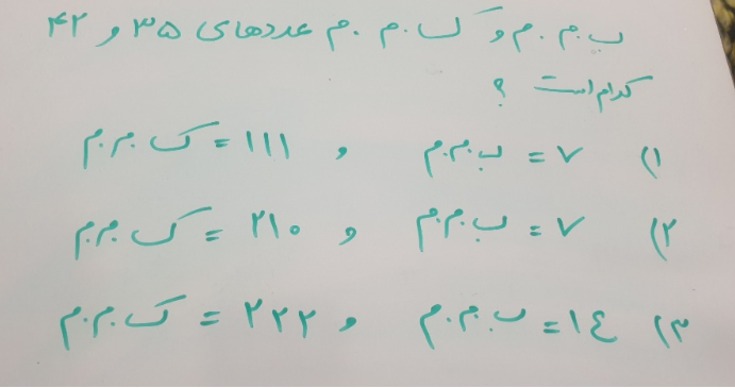 ب.م.م و ک.م.م عددهای ۳۵ و ۴۲
کدام است ؟
۱) ب.م.م = ۷ و ک.م.م = ۱۱۱
۲) ب.م.م = ۷ و ک.م.م = ۲۱۰
۳) ب.م.م = ۱٤ و ک.م.م = ۲۲۲